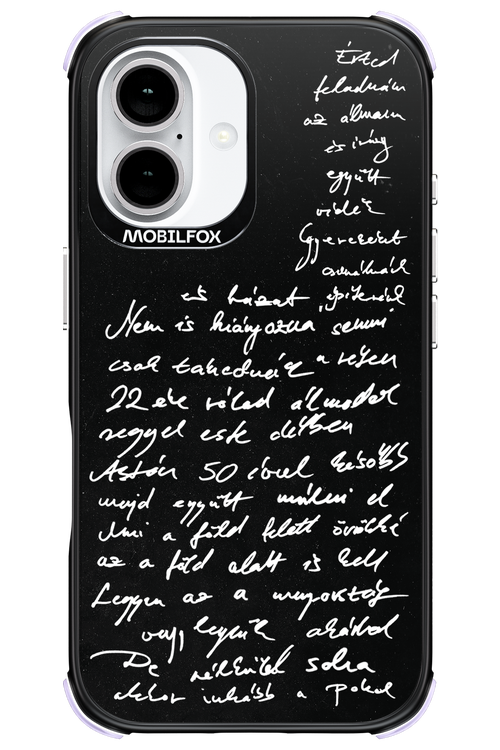 MOBILFOX
Érted
feladnám
az álmaim
és irány
együtt
vidék
Gyerekeket
csinálnánk
és házat építenénk
Nem is hiányozna semmi
csak takednánk a réten
22 éve rólad álmodok
reggel este délben
Aztán 50 évvel később
majd együtt múlni el
Ami a föld felett örökké
az a föld alatt is kell
Legyen az a menyország
vagy legyünk akárhol
De nélküled soha
akkor inkább a Pokol